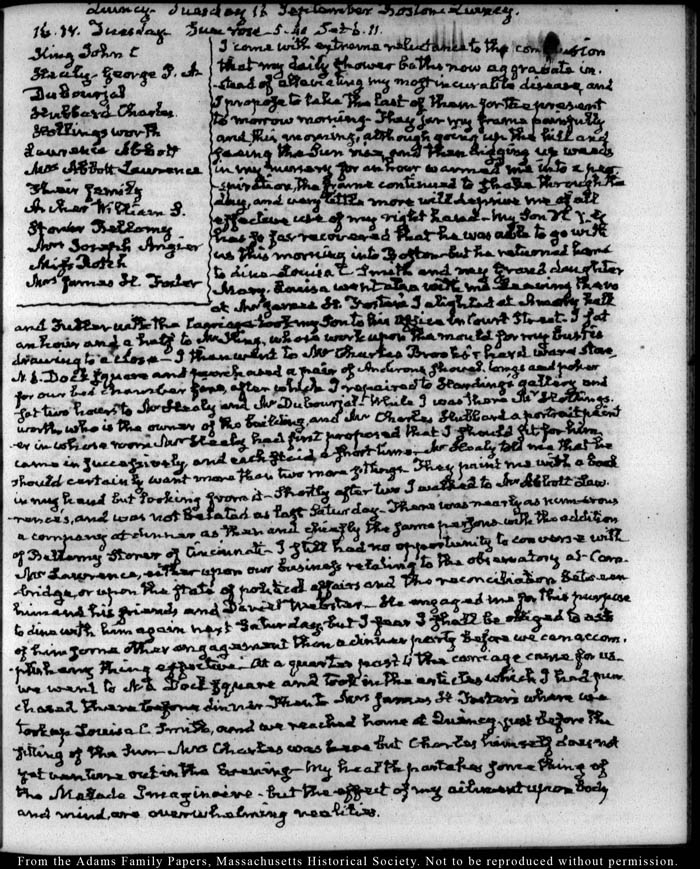 Quincy. Tuesday 16 September Boston-Quincy.
16. IV. Tuesday. Sun rose 5.40 Set 6.11
King John C
Healy-George P. A
DuBourjal
Hubbard Charles
Hollingsworth
Lawrence Abbott
Mrs Abbott Lawrence
Their family
Archer William S.
Storer Bellamy
Mrs Joseph Angier
Miss Rotch
Mrs James H. Foster
I come with extreme reluctance to the conclusion
that my daily shower baths now aggravate in-
stead of alleviating my most incurable disease, and
I propose to take the last of them for the present
to morrow morning. They jar my frame painfully
and this morning, although going up the hill and
seeing the Sun rise, and then digging up weeds
in my nursery for an hour warmed me into a per-
spiration, the frame continued to shake through the
day, and very little more will deprive me of all
effective use of my right hand- My Son
has so far recovered that he was able to go with
us this morning into Boston- but he returned home
to dine- Louisa C. Smith and my Grand daughter
Mary. Louisa went also with me Leaving them
at Mrs James H. Foster's I alighted at Amory hall
and Fuller with the Carriage took my Son to his Office in Court Street. I sat
an hour and a half to Mr King, whose work upon the mould for my bust is
drawing to a close- I then went to Mr Charles Brooks's hard ware Store
N. 6. Dock Square and purchased a pair of Andirons, shovel, tongs and poker
for our bed chamber fire, after which I repaired to Harding's gallery and
sat two hours to Mr Healy and Mr Dubourjal- While I was there Mr Hollings-
worth who is the owner of the building, and Mr Charles Hubbard a portrait paint
er in whose room Mr Healy had first proposed that I should sit for him
came in successively and each staid a short time- Mr Healy told me that he
should certainly want more than two more sittings. They paint me with a book
in my hand but looking from it- Shortly after two I walked to Mr Abbott Law-
rence's, and was not belated as last Saturday- There was nearly as numerous
a company at dinner as then and chiefly the same persons with the addition
of Bellamy Storer of Cincinnati- I still had no opportunity to converse with
Mr Lawrence, either upon our business relating to the observatory at Cam-
bridge, or upon the State of political affairs and the reconciliation between
him and his friends, and Daniel Webster- He engaged me for this purpose
to dine with him again next Saturday but I fear I shall be obliged to ask
of him some other engagement than a dinner party before we can accom-
plish any thing effective- At a quarter past 4 the carriage came for us-
we went to N. 6 Dock Square and took in the articles which I had pur-
chased there before dinner Then to Mrs James H. Foster's where we
took up Louisa C. Smith, and we reached home at Quincy just before the
setting of the Sun- Mrs Charles was here but Charles himself does not
yet venture out in the Evening- My health partakes some thing of
the Malade Imaginaire- but the effect of my ailment upon body
and mind, are overwhelming realities.
From the Adams Family Papers, Massachusetts Historical Society. Not to be reproduced without permission.